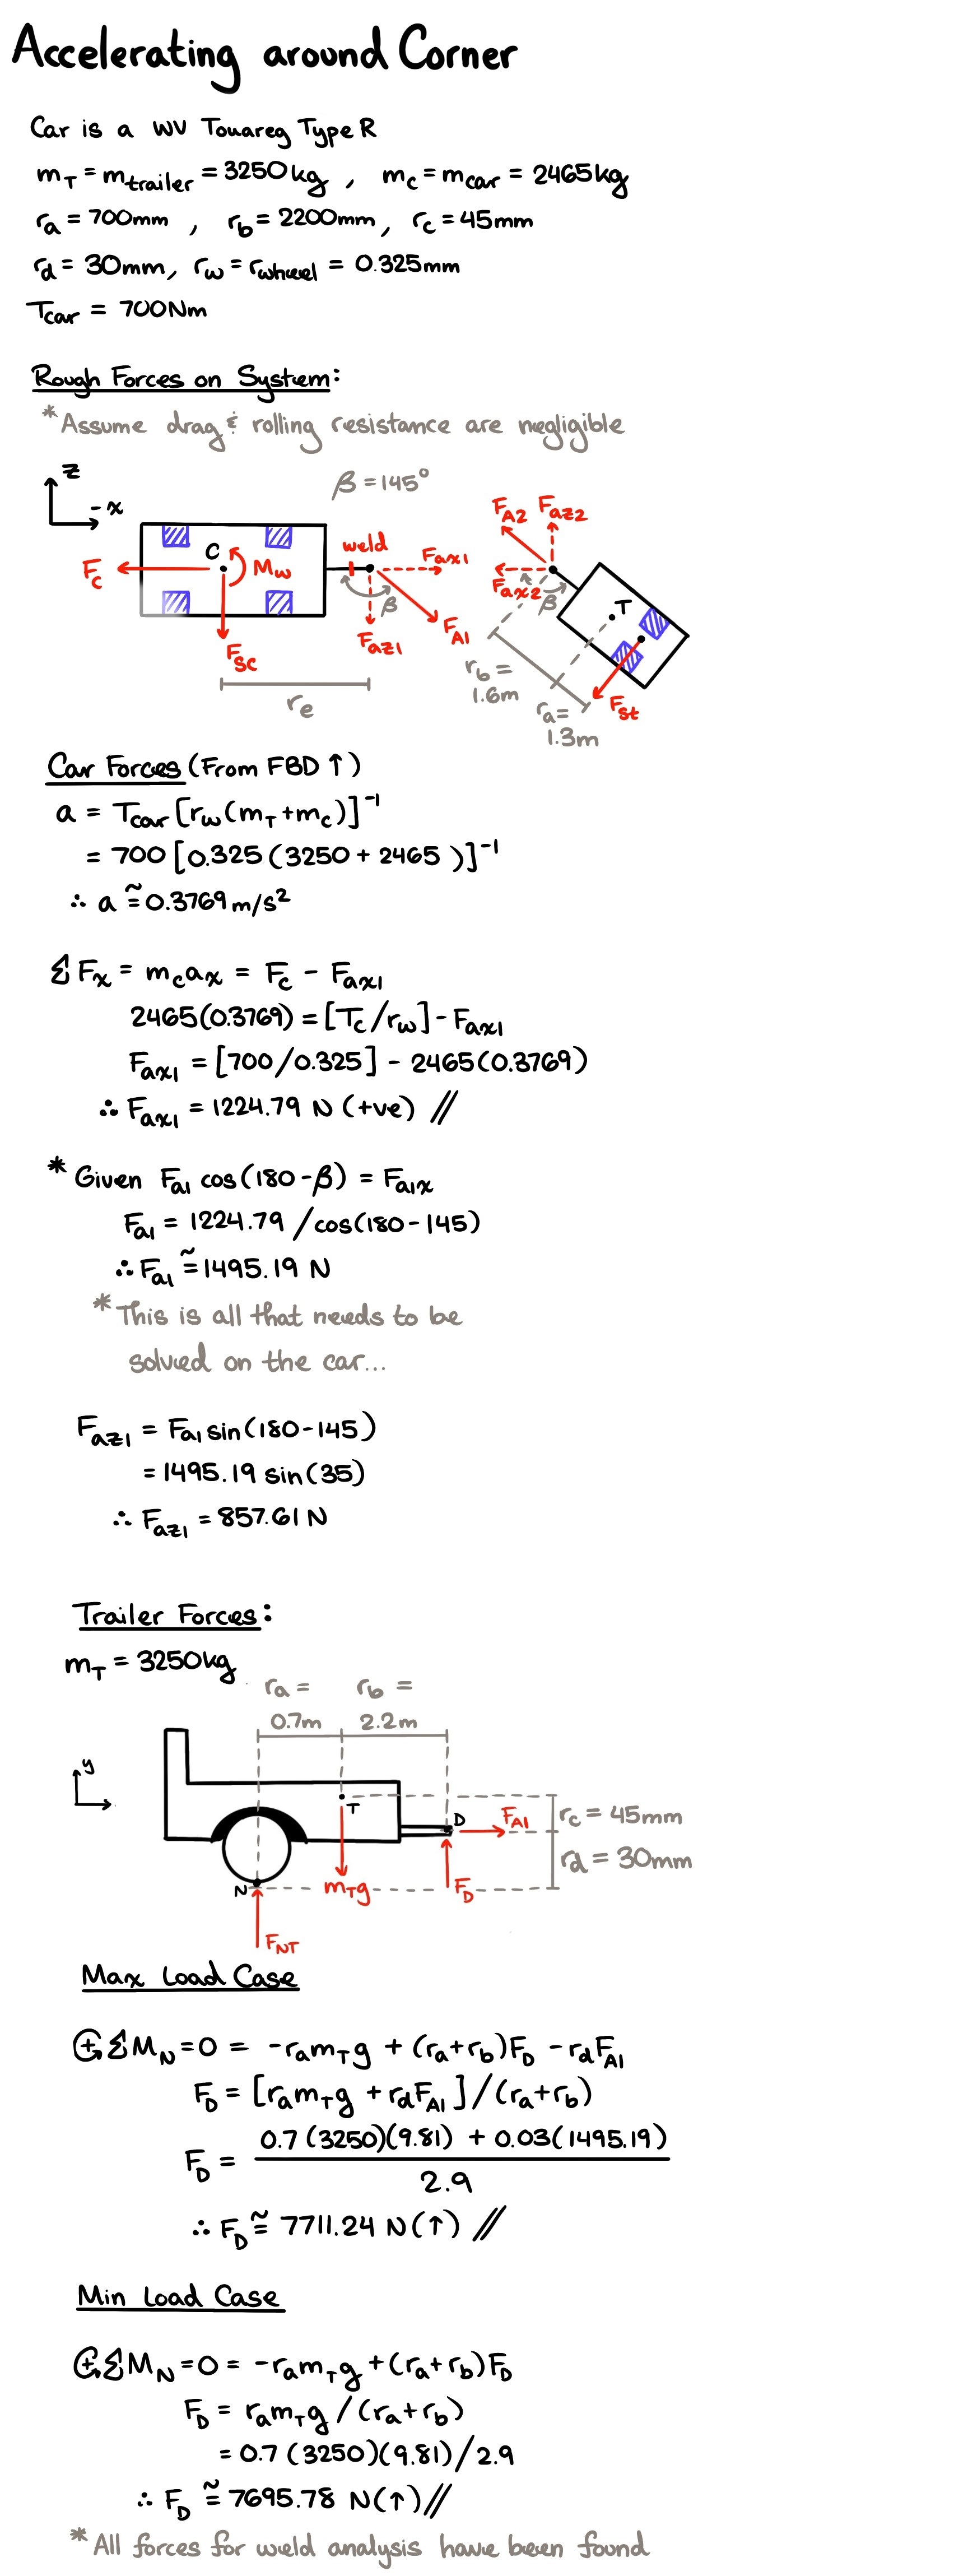 Accelerating around Corner
Car is a WV Touareg Type R
m_T = m_trailer = 3250kg , m_c = m_car = 2465kg
r_a = 700mm , r_b = 2200mm, r_c = 45mm
r_d = 30mm, r_w = r_wheel = 0.325mm
T_car = 700Nm
Rough Forces on System:
*Assume drag & rolling resistance are negligible
z
-x
β = 145°
C
F_c
M_w
F_sc
r_e
weld
F_ax1
β
F_az1
F_A1
F_A2 F_az2
F_ax2
β
T
r_b =
1.6m
r_a =
1.3m
F_st
Car Forces (From FBD ↑)
a = T_car [r_w(m_T + m_c)]^-1
= 700 [0.325(3250 + 2465)]^-1
∴ a ≅ 0.3769 m/s²
ΣF_x = m_c a_x = F_c - F_ax1
2465(0.3769) = [T_c/r_w] - F_ax1
F_ax1 = [700/0.325] - 2465(0.3769)
∴ F_ax1 = 1224.79 N (+ve) //
* Given F_a1 cos(180-β) = F_a1x
F_a1 = 1224.79 / cos(180-145)
∴ F_a1 ≅ 1495.19 N
*This is all that needs to be
solved on the car...
F_az1 = F_a1 sin(180-145)
= 1495.19 sin(35)
∴ F_az1 = 857.61 N
Trailer Forces:
m_T = 3250kg
r_a = r_b =
0.7m 2.2m
y
T
D
F_A1
r_c = 45mm
r_d = 30mm
N
m_T g
F_D
F_NT
Max Load Case
+ΣM_N = 0 = -r_a m_T g + (r_a + r_b)F_D - r_d F_A1
F_D = [r_a m_T g + r_d F_A1] / (r_a + r_b)
F_D = 0.7(3250)(9.81) + 0.03(1495.19)
2.9
∴ F_D ≅ 7711.24 N (↑) //
Min Load Case
+ΣM_N = 0 = -r_a m_T g + (r_a + r_b)F_D
F_D = r_a m_T g / (r_a + r_b)
= 0.7(3250)(9.81)/2.9
∴ F_D ≅ 7695.78 N(↑) //
*All forces for weld analysis have been found